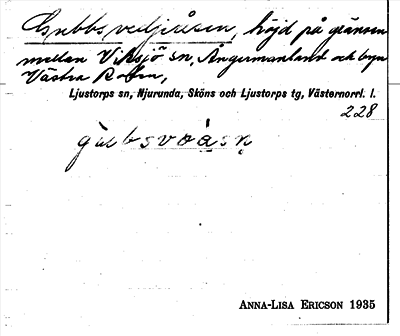 Gubbsvedjeåsen, höjd på gränsen
mellan Viksjö sn, Ångermanland och byn
Västra Robin,
Ljustorps sn, Njurunda, Sköns och Ljustorps tg, Västernorrl. l.
228
ANNA-LISA ERICSON 1935